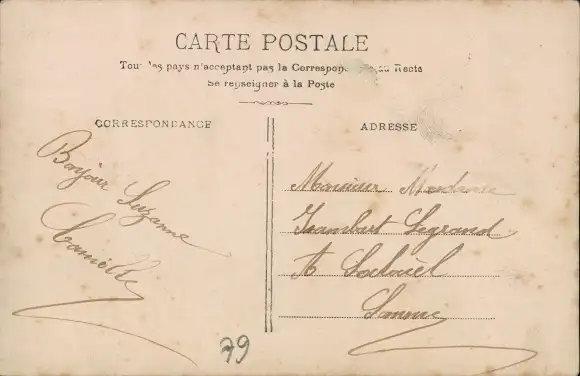 CARTE POSTALE
Tous les pays n'acceptant pas la Correspon au Recto
Se renseigner à la Poste
CORRESPONDANCE
ADRESSE
Bonjour Suzanne
Camille
Monsieur Madame
Legrand
A
Somme
79